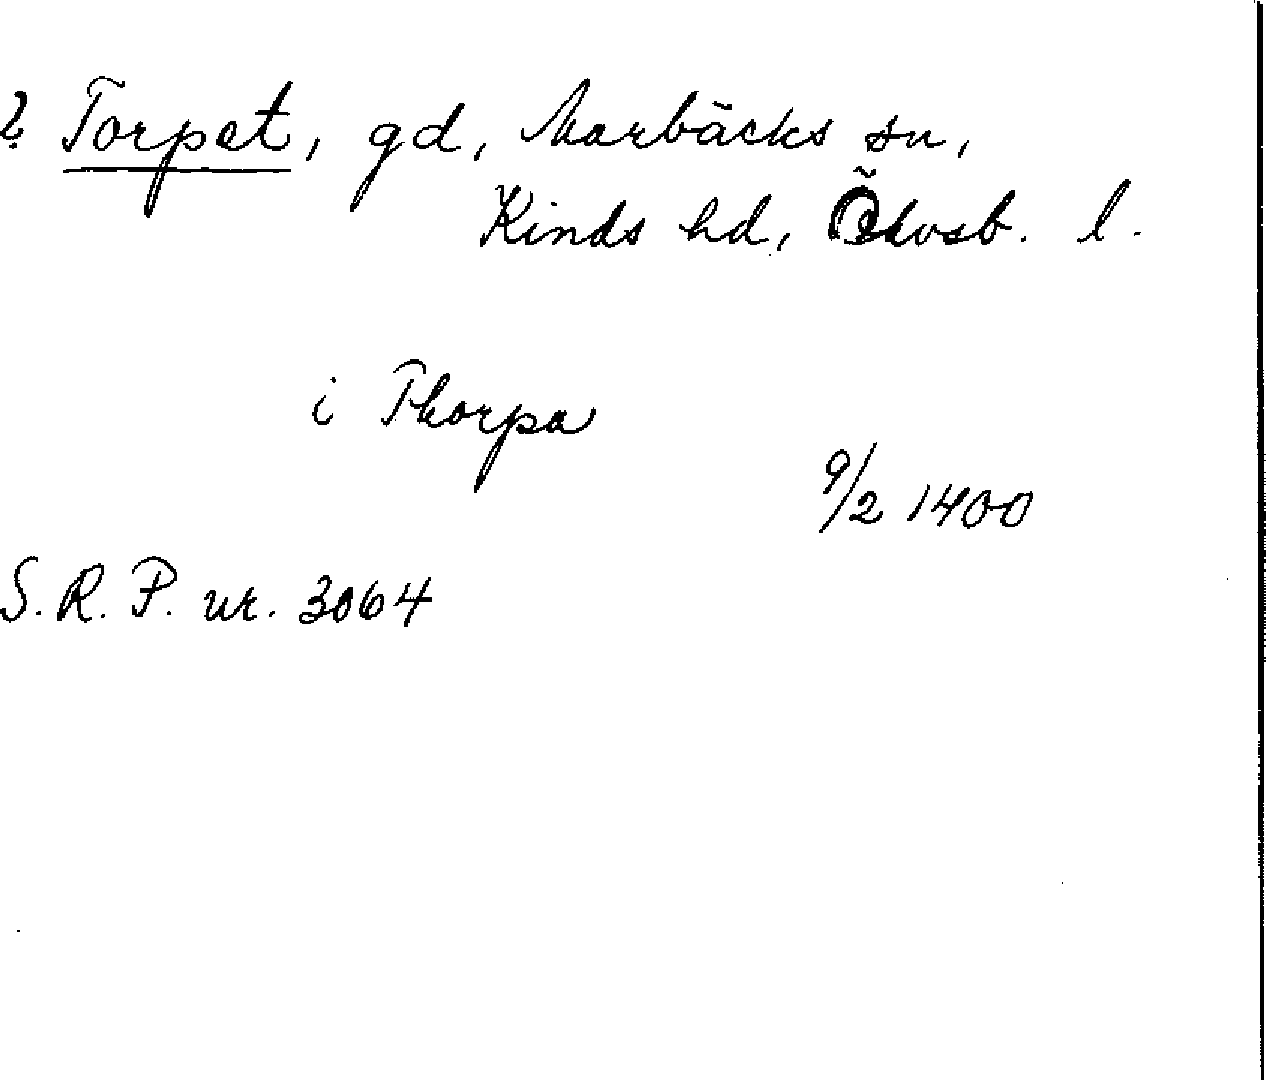 ? Torpet, gd, Marbäcks sn,
Kinds hd, Älvsb. l.
i Thorpa
9/2 1400
S. R. P. nr. 3064